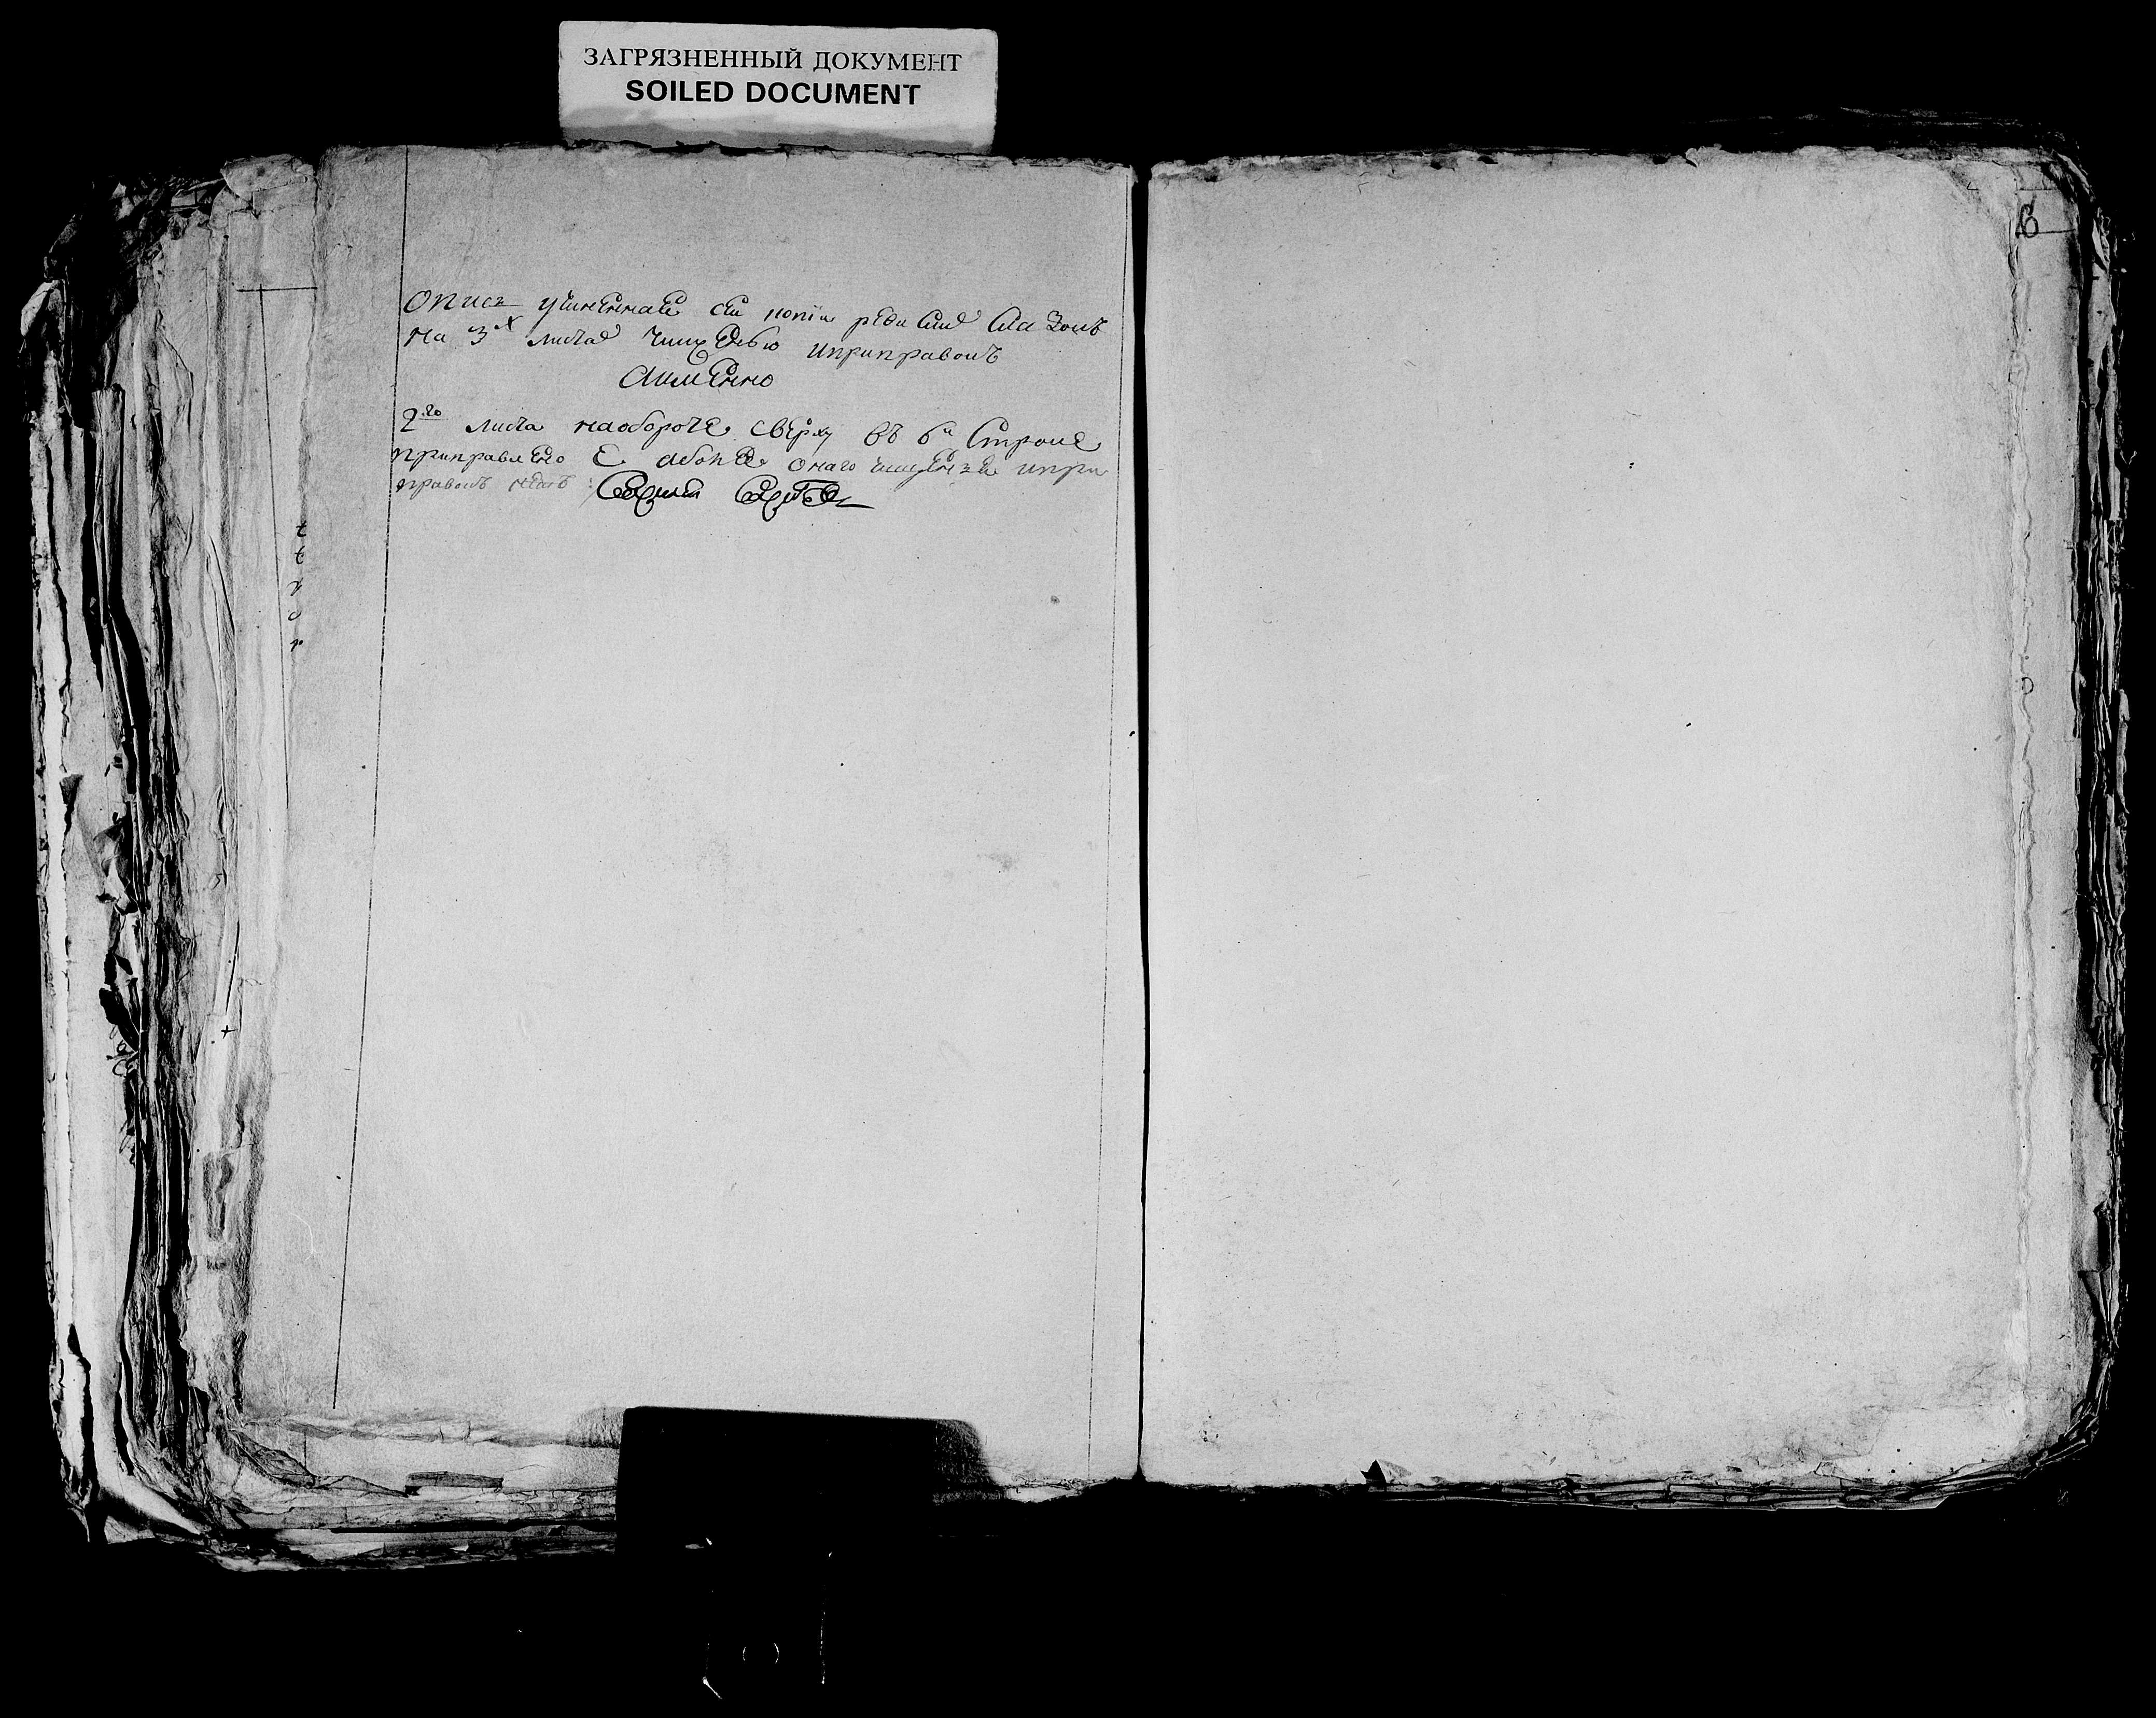 ЗАГРЯЗНЕННЫЙ ДОКУМЕНТ
SOILED DOCUMENT
Опись учиненная сей копіи ревиской сказокъ
на 3х листах чищенью иприправокъ
Аимянно
2го листа наобороте сверху въ 6й строке
приправлено е аболее онаго чищенья ипри
правокъ нетъ
6